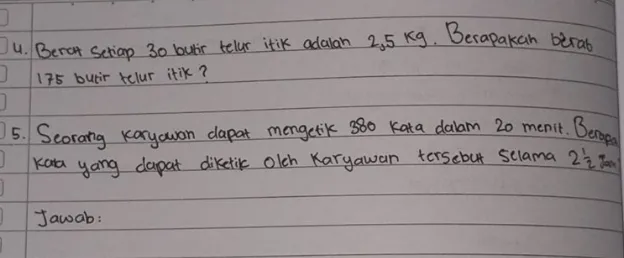 4. Berat setiap 30 butir telur itik adalah 2,5 kg. Berapakah berat
175 butir telur itik?
5. Seorang karyawan dapat mengetik 380 kata dalam 20 menit. Berapa
kata yang dapat diketik oleh karyawan tersebut selama 2 1/2 Jam
Jawab: